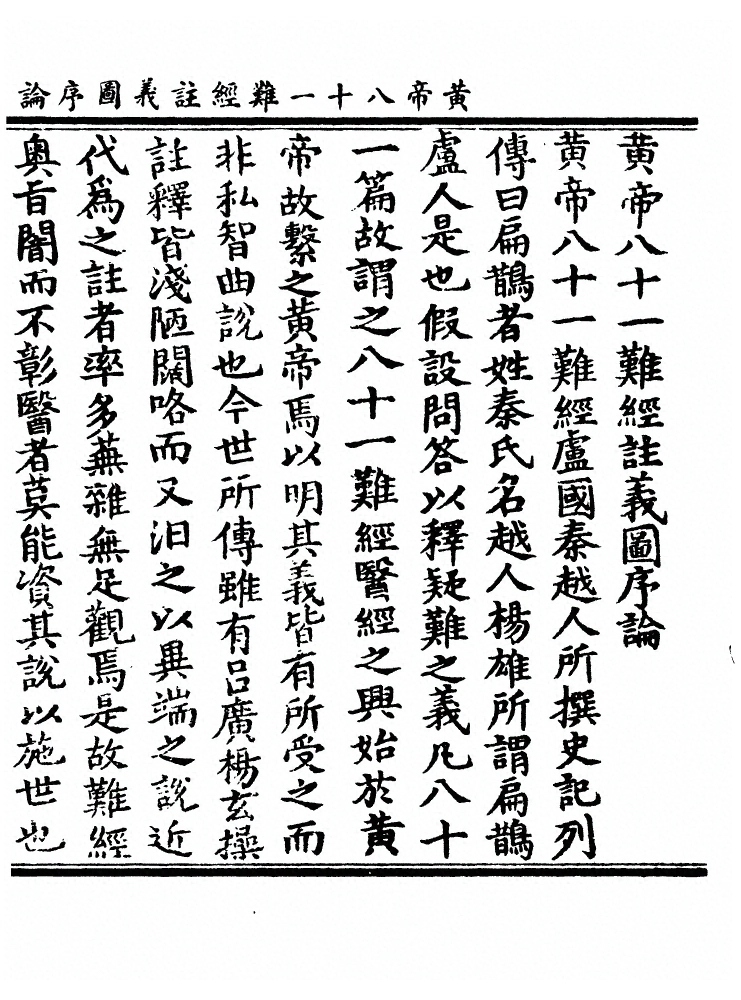 黃帝八十一難經註義圖序論
黃帝八十一難經註義圖序論
黃帝八十一難經盧國秦越人所撰史記列
傳曰扁鵲者姓秦氏名越人楊雄所謂扁鵲
盧人是也假設問答以釋疑難之義凡八十
一篇故謂之八十一難經醫經之興始於黃
帝故繫之黃帝焉以明其義皆有所受之而
非私智曲說也今世所傳雖有呂廣楊玄操
註釋皆淺陋闊咯而又汩之以異端之說近
代爲之註者率多蕪雜無足觀焉是故難經
奧旨闇而不彰醫者莫能資其說以施世也